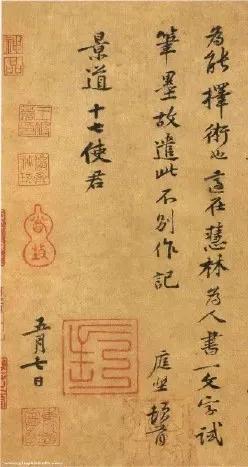 為能擇術也適在慧林為人書一文字試
筆墨故遣此不別作記
庭堅頓首
景道十七使君
五月七日